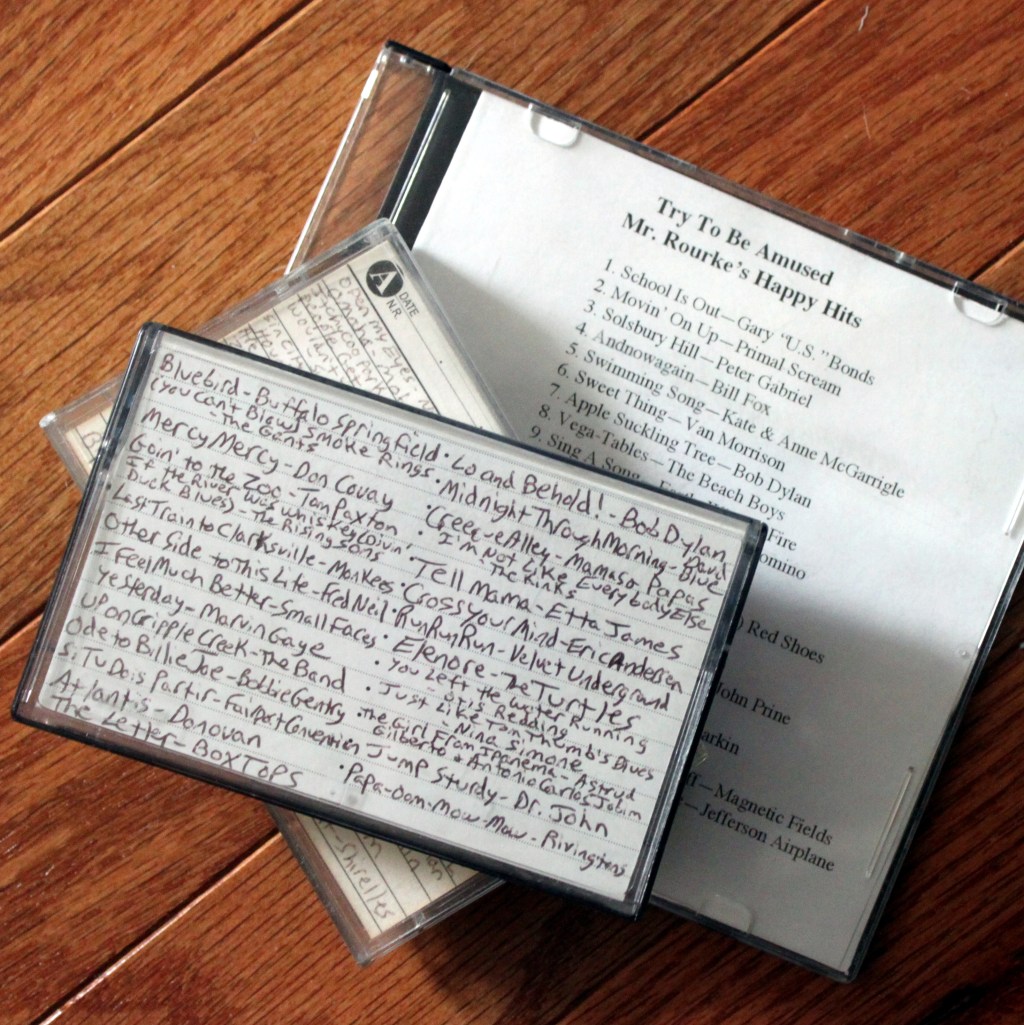 Try To Be Amused
Mr. Rourke's Happy Hits
1. School Is Out—Gary "U.S." Bonds
2. Movin' On Up—Primal Scream
3. Solsbury Hill—Peter Gabriel
4. Andnowagain—Bill Fox
5. Swimming Song—Kate & Anne McGarrigle
6. Sweet Thing—Van Morrison
7. Apple Suckling Tree—Bob Dylan
8. Vega-Tables—The Beach Boys
9. Sing A Song
Fire
omino
) Red Shoes
John Prine
arkin
—Magnetic Fields
—Jefferson Airplane
A DATE
N.R.
Open My Eyes
Bluebird - Buffalo Springfield
(you can't Blow) Smoke Rings
- The Gants
Mercy Mercy - Don Covay
Goin' to the Zoo - Tom Paxton
If the River was whiskey (Divin'
Duck Blues) - The Rising Sons
Last Train to Clarksville - Monkees
Other Side to This Life - Fred Neil
I Feel Much Better - Small Faces
Yesterday - Marvin Gaye
Up on Cripple Creek - The Band
Ode to Billie Joe - Bobbie Gentry
Si Tu Dois Partir - Fairport Convention
Atlantis - Donovan
The Letter - Box Tops
• Lo and Behold! - Bob Dylan
• Midnight Through Morning - David Blue
• Creeque Alley - Mamas & Papas
• I'm Not Like Everybody Else
The Kinks
• Tell Mama - Etta James
• Cross Your Mind - Eric Andersen
• Run Run Run - Velvet Underground
• Elenore - The Turtles
• You Left the Water Running
- Otis Redding
• Just Like Tom Thumb's Blues
- Nina Simone
• The Girl From Ipanema - Astrud
Gilberto & Antonio Carlos Jobim
Jump Sturdy - Dr. John
• Papa-Oom-Mow-Mow - Rivingtons
Shirelles